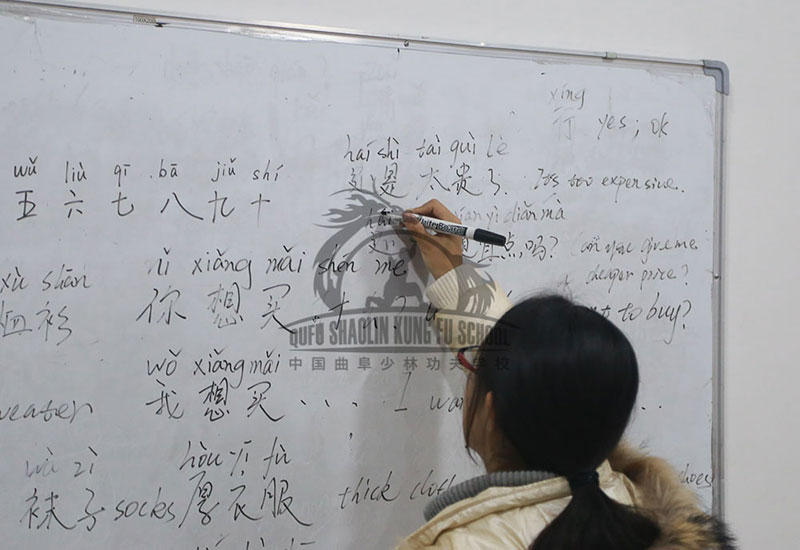 xíng
行 yes; ok
haí shì taì guì lè
还是太贵了. It's too expensive.
wǔ liù qī bā jiǔ shí
五 六 七 八 九 十
haí
宜点吗? Can you give me
cheaper price?
xù shān
恤衫
nǐ xiǎng mǎi shén me
你想买什 ? to buy?
wǒ xiǎng mǎi
我想买... I wan ...
weater
wà zi
袜子 socks
hòu yī fù
厚衣服 thick cloth shoes
WhiteBoard
QUFU SHAOLIN KUNG FU SCHOOL
中国曲阜少林功夫学校